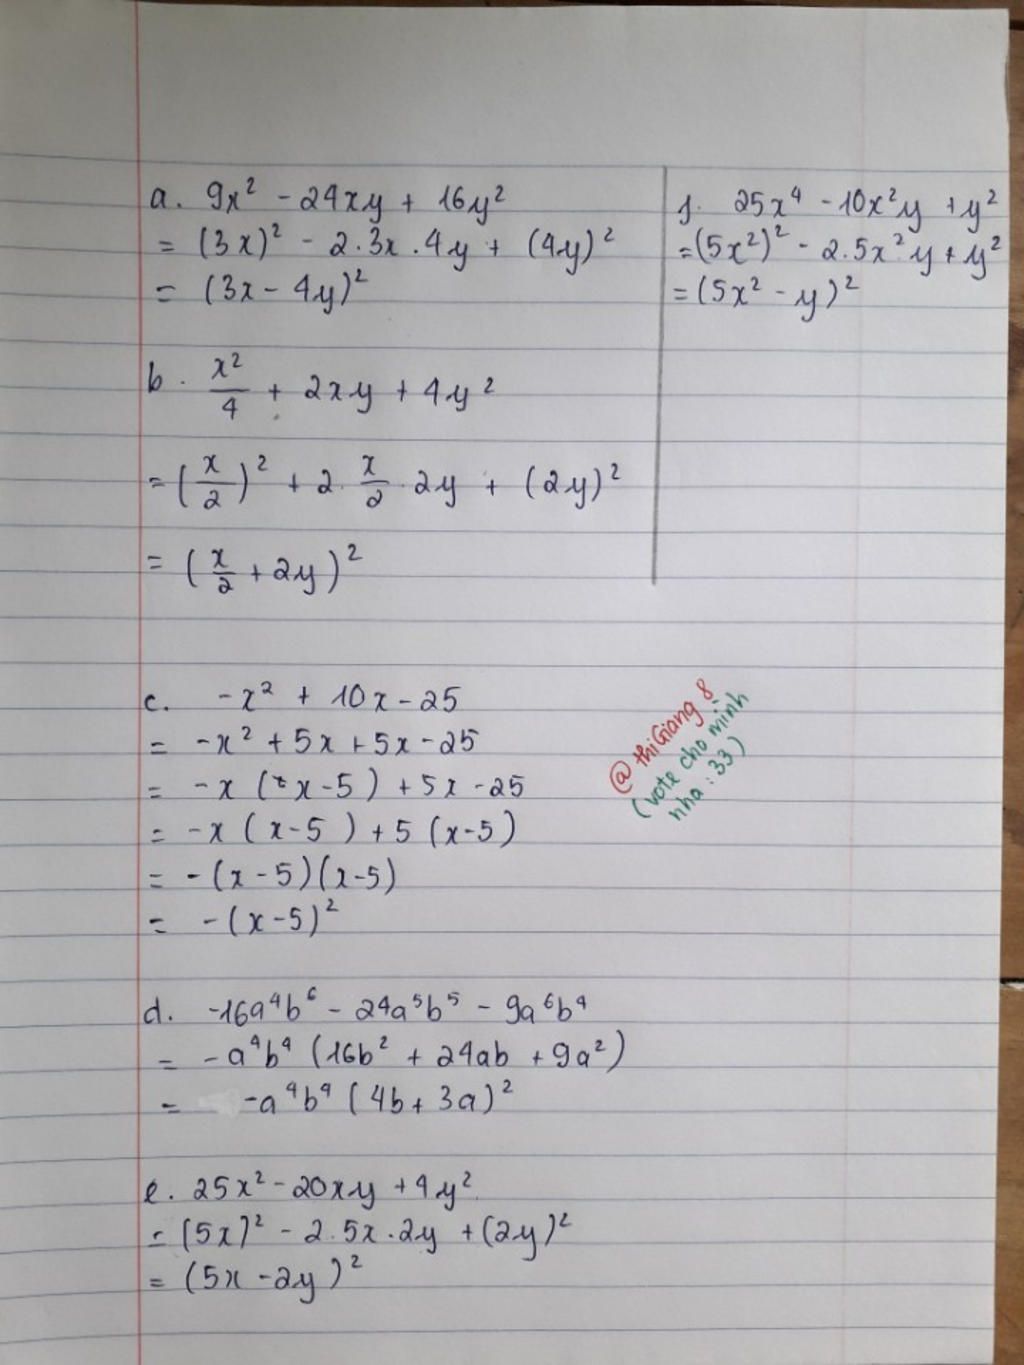 a. 9x² - 24xy + 16y²
= (3x)² - 2.3x.4y + (4y)²
= (3x - 4y)²
b. x²/4 + 2xy + 4y²
= (x/2)² + 2. x/2 . 2y + (2y)²
= (x/2 + 2y)²
f. 25x⁴ - 10x²y + y²
= (5x²)² - 2.5x²y + y²
= (5x² - y)²
c. -x² + 10x - 25
= -x² + 5x + 5x - 25
= -x (x - 5) + 5x - 25
= -x (x - 5) + 5 (x - 5)
= -(x - 5)(x - 5)
= -(x - 5)²
@thiGiang8
(vote cho mình
nha : 33)
d. -16a⁴b⁶ - 24a⁵b⁵ - 9a⁶b⁴
= -a⁴b⁴ (16b² + 24ab + 9a²)
= -a⁴b⁴ (4b + 3a)²
e. 25x² - 20xy + 4y²
= (5x)² - 2.5x.2y + (2y)²
= (5x - 2y)²